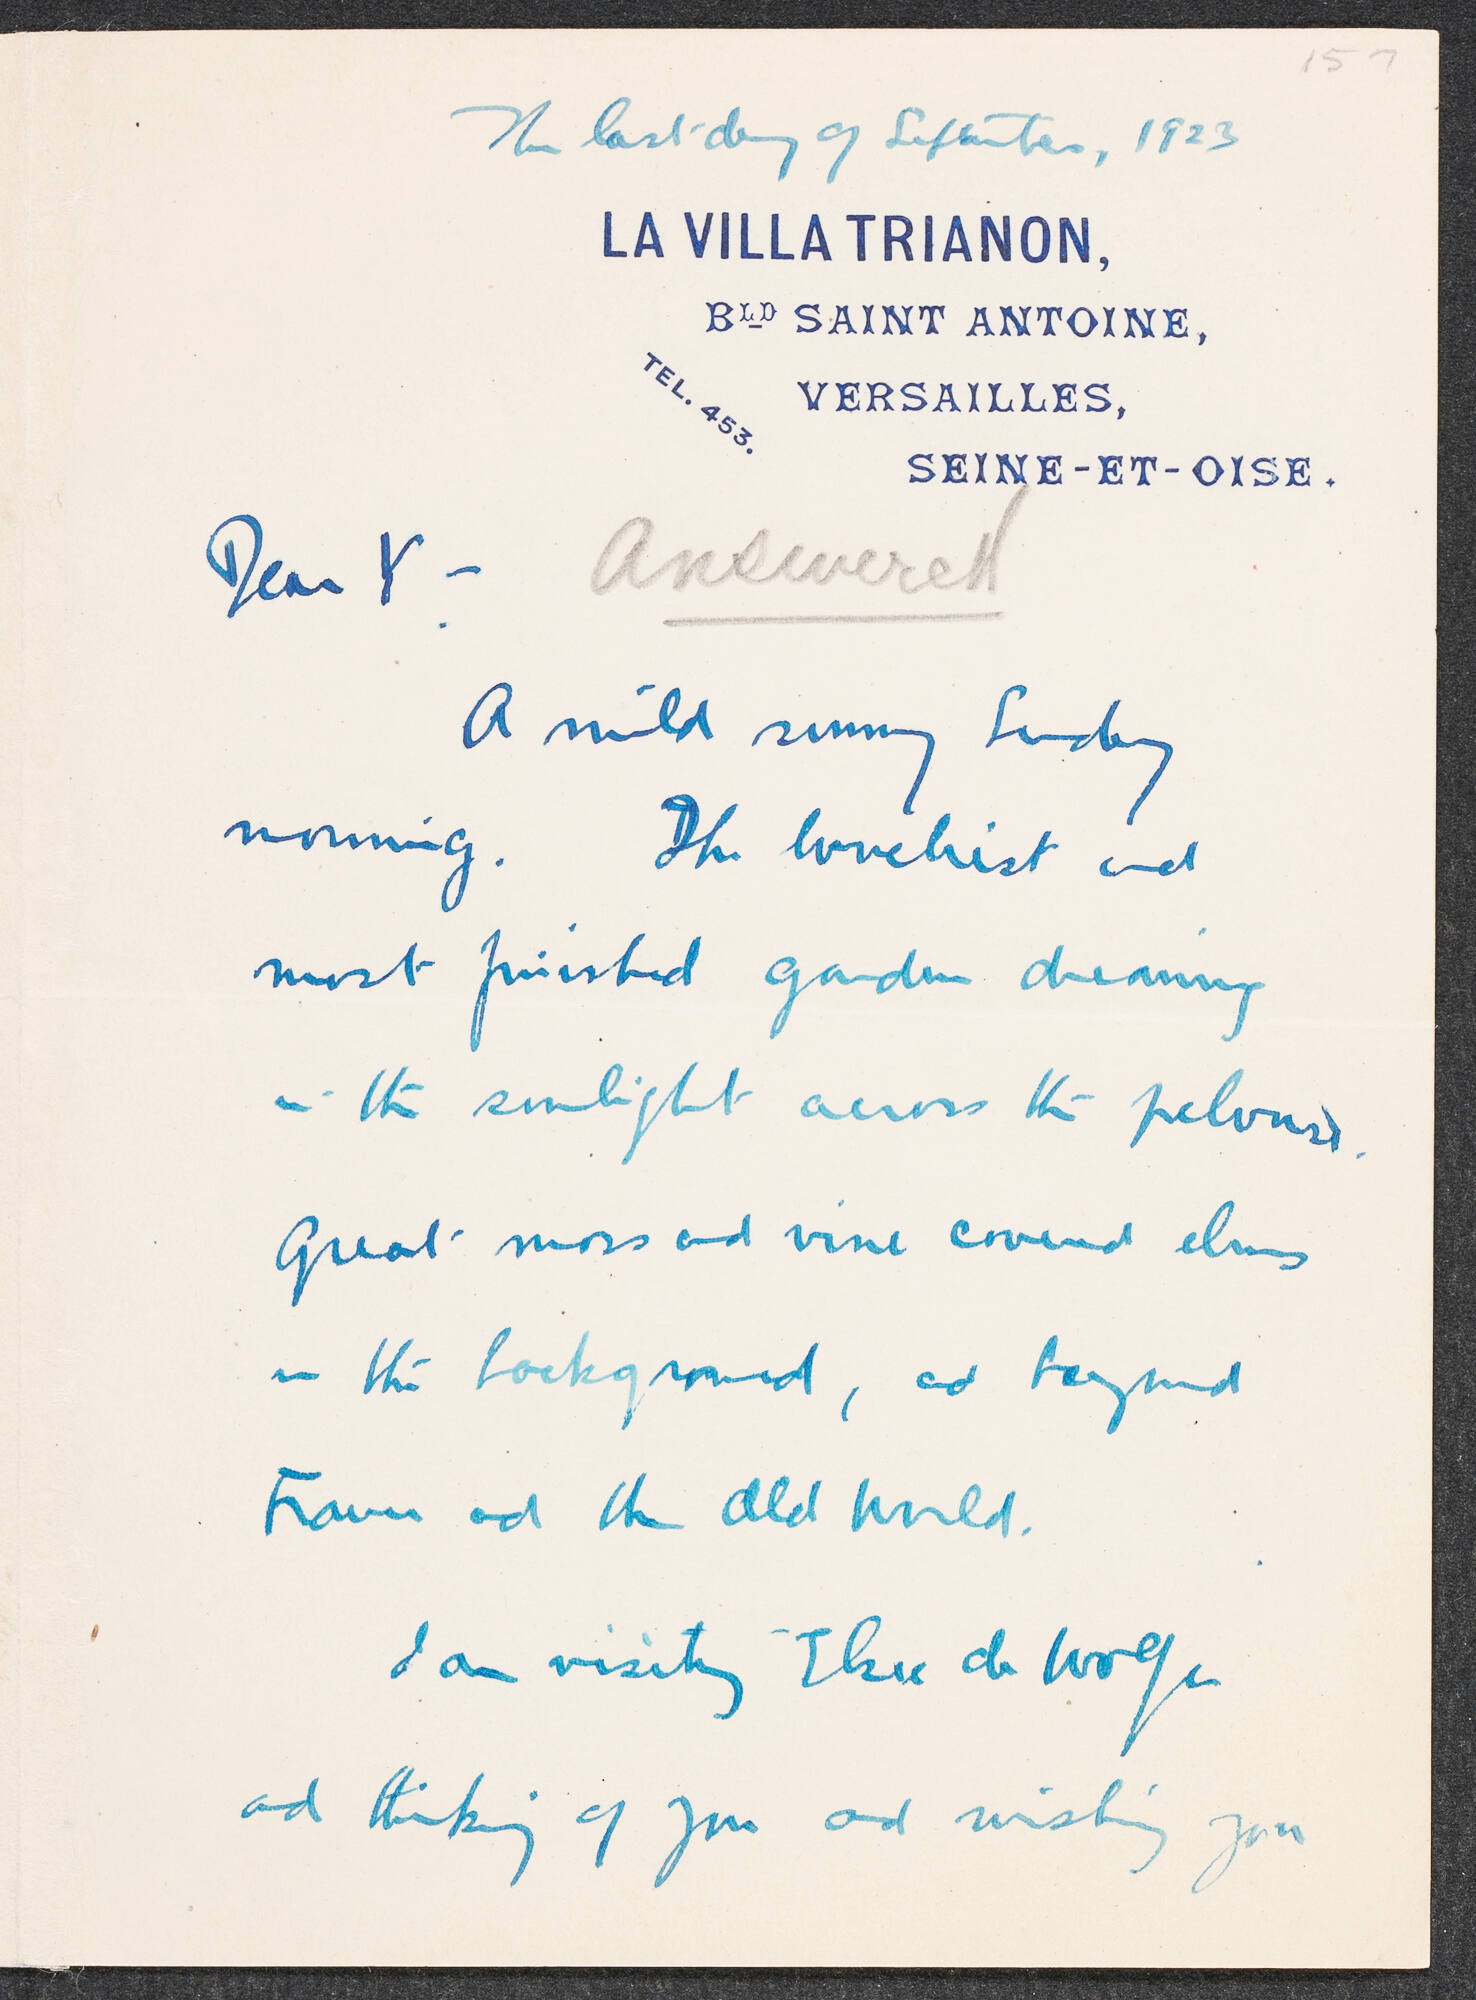 157
The last day of September, 1923
LA VILLA TRIANON,
BLD SAINT ANTOINE,
TEL. 453.
VERSAILLES,
SEINE-ET-OISE.
Dear Y –
Answered
A mild sunny Sunday
morning. The loveliest and
most finished garden dreaming
in the sunlight across the pelouse.
Great moss and vine covered elms
in the background, and beyond
France and the Old World.
I am visiting Elsie de Wolfe
and thinking of you and wishing you